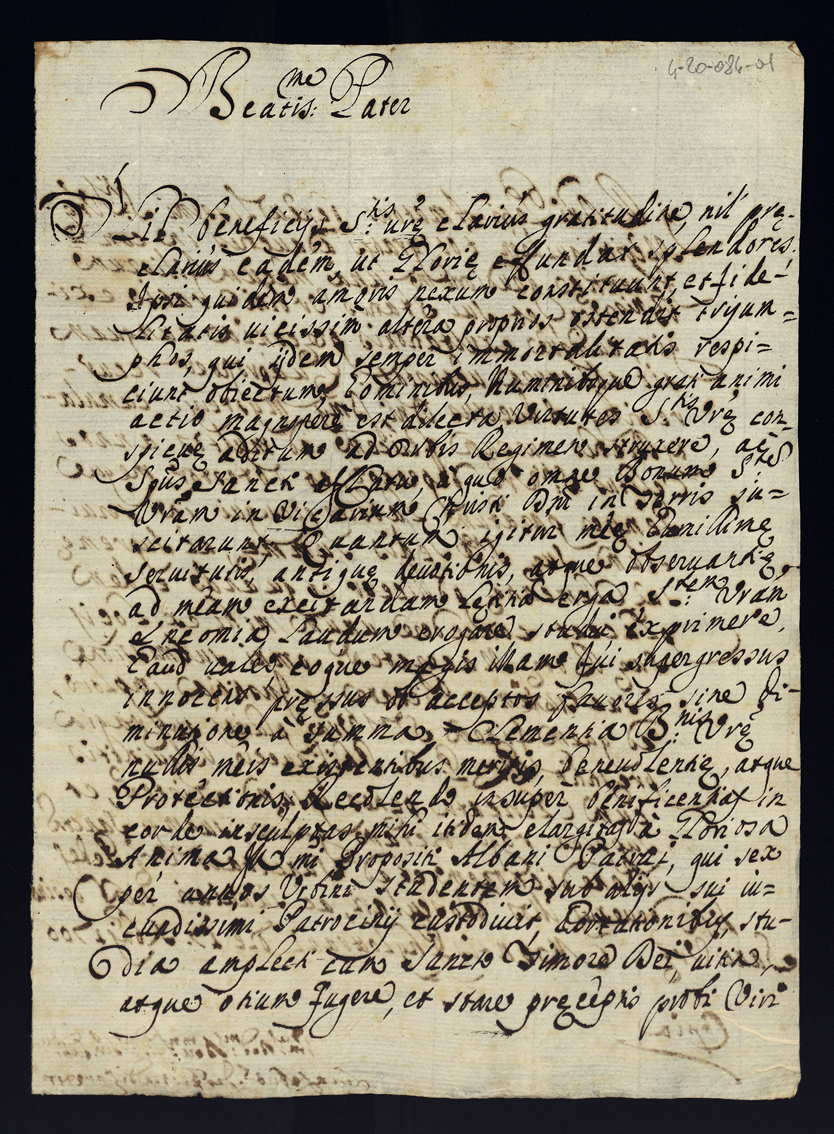 4-20-084-01
Beatis:me Pater
Sic beneficijs S:tis urę clarius gratitudine, nil prę-
clarius eadem, ut Glorię effundat splendores.
Ipsi quidem amoris nexum constituunt, et fide-
litatis uicissim altera proprios ostendit trijum=
phos, qui ijdem semper immortalitatis respi=
ciunt obiectum, hominibus, Numinibusque grati animi
actio magnopere est dilecta. Virtutes S:tis Vrę con-
spicuę aditum ad Orbis Regimen struxere, ac
Spūs Sancti afflatu, a quo omne Bonum S:tẽ
Vram in Vicarium Christi Dni in Terris su=
scitarunt. Quantum igitur meę humillimę
seruitutis, antiquę deuotionis, atque obseruantię,
ad meam excitandam erga S:tem Vram
Encomia Laudum erogare studui exprimere,
haud ualeo eoque magis illam fui supergressus
innocens pressus ob acceptos fauores sine di-
minutione à summa Clementia B:nis Vrę
nullis meis existentibus meritis, beneuolentię, atque
Protectionis. Recolendo insuper beneficentias in
corde insculptas mihi itidem elargitas à Gloriosa
Anima mi Propositi Albani Patrui, qui sex
per annos Vrbini studentem sub alijs sui iu=
cundissimi Patrocinij custodiuit, hortationibus, stu-
dia amplecti cum Sancto Timore Dei, uitia,
atque otium fugere, et stare pręceptis probi Viri